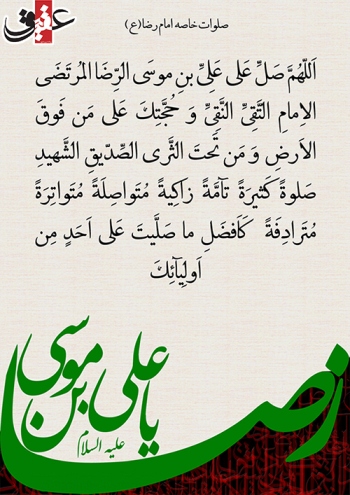 عقیق
صلوات خاصه امام رضا(ع)
اَللّهُمَّ صَلِّ عَلی عَلِیِّ بنِ موسَی الرِّضَا المُرتَضَی
الاِمامِ التَّقِیِّ النَّقِیِّ وَ حُجَّتِكَ عَلی مَن فَوقَ
الاَرضِ وَ مَن تَحتَ الثَّری الصِّدّیقِ الشَّهیدِ
صَلوةً كَثیرَةً تآمَّةً زاكِیةً مُتَواصِلَةً مُتَواتِرَةً
مُتَرادِفَةً كَاَفضَلِ ما صَلَّیتَ عَلی اَحَدٍ مِن
اَولِیآئِكَ
یا علی بن موسی
رضا
علیه السلام